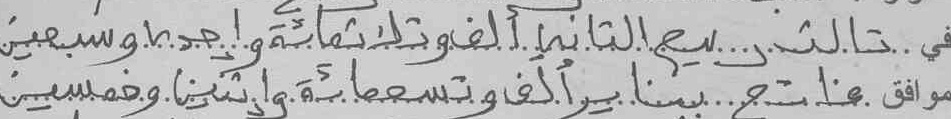 في تالث ربيع التاني ألف وتلاثمائة واحدى وسبعين
موافق فاتح يناير ألف وتسعمائة واثنين وخمسين